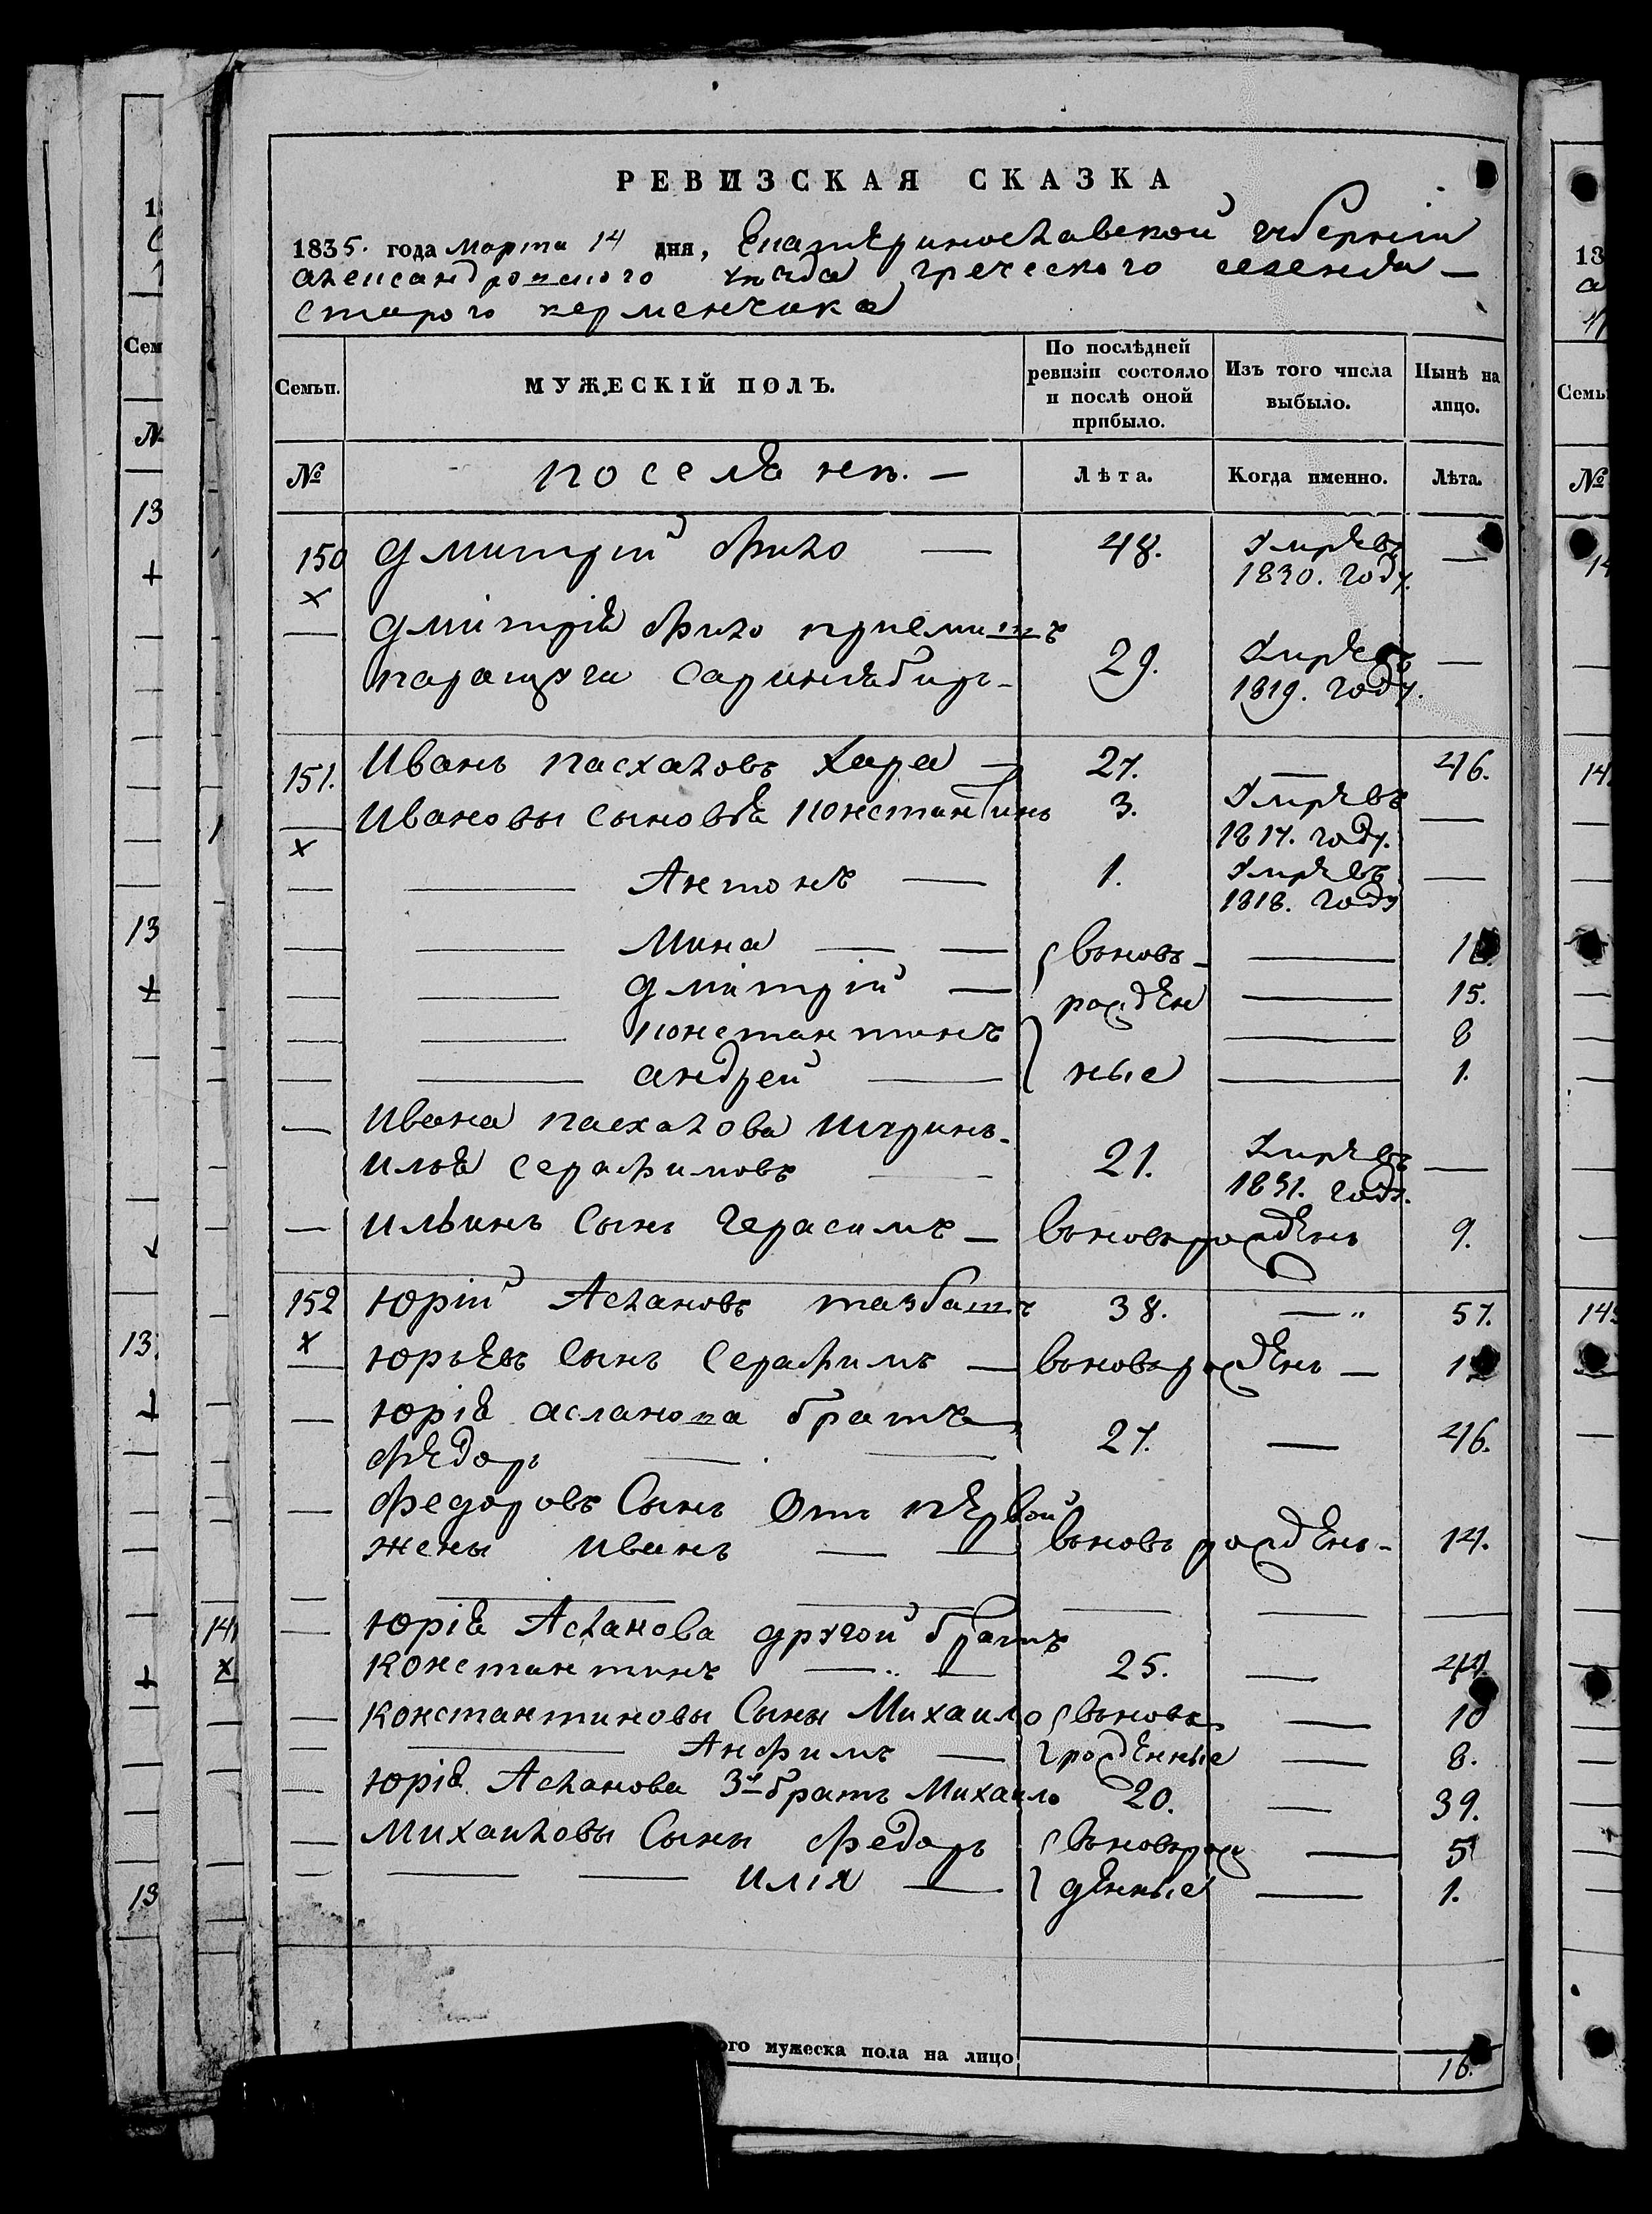 РЕВИЗСКАЯ СКАЗКА
1835. года марта 14 дня, Екатѣринославской губернiи
александровского уезда греческого селенiя —
старого керменчика
Семьи. МУЖЕСКІЙ ПОЛЪ. По послѣдней ревизіи состояло и послѣ оной прибыло. Изъ того числа выбыло. Нынѣ на лицо.
№ поселянъ. — Лѣта. Когда именно. Лѣта.
150 Дмитрій Фило — 48. Умрѣвъ 1830. году. —
Дмітрія Фило приемышъ
29. Умрѣвъ 1819. году. —
151. Иванъ Пасхаловъ Хара — 27. — 46.
Ивановы сыновья Константинъ 3. Умрѣвъ 1817. году. —
Антонъ — 1. Умрѣвъ 1818. году —
Мина — — вьновь —
Дмітрій — рожден — 15.
Константинъ — 8
Андрей — ные — 1.
Ивана Пасхалова шуринъ.
Илья Серафимовъ — 21. Умрѣвъ 1831. году. —
Ильинъ сынъ Герасимъ — вьновьрождѣнъ 9.
152 Юрій Аслановъ тазбашъ 38. — 57.
Юрьевъ сынъ Серафимъ — вьновьрождѣнъ —
Юрія Асланова братъ
Фѣдоръ — 27. — 46.
Федоровъ Сынъ Отъ пѣрвой
жены Иванъ — — вьновь рождѣнъ — 14.
Юрія Асланова другой братъ
Константинъ — 25. — 44.
Константиновы Сыны Михаило вьновь — 10
Анфимъ — рождѣнные — 8.
Юрія Асланова 3й братъ Михаило 20. — 39.
Михаиловы Сыны Федоръ вьноврож — 5
Илія — дѣнные — 1.
ого мужеска пола на лицо 16.
14
13